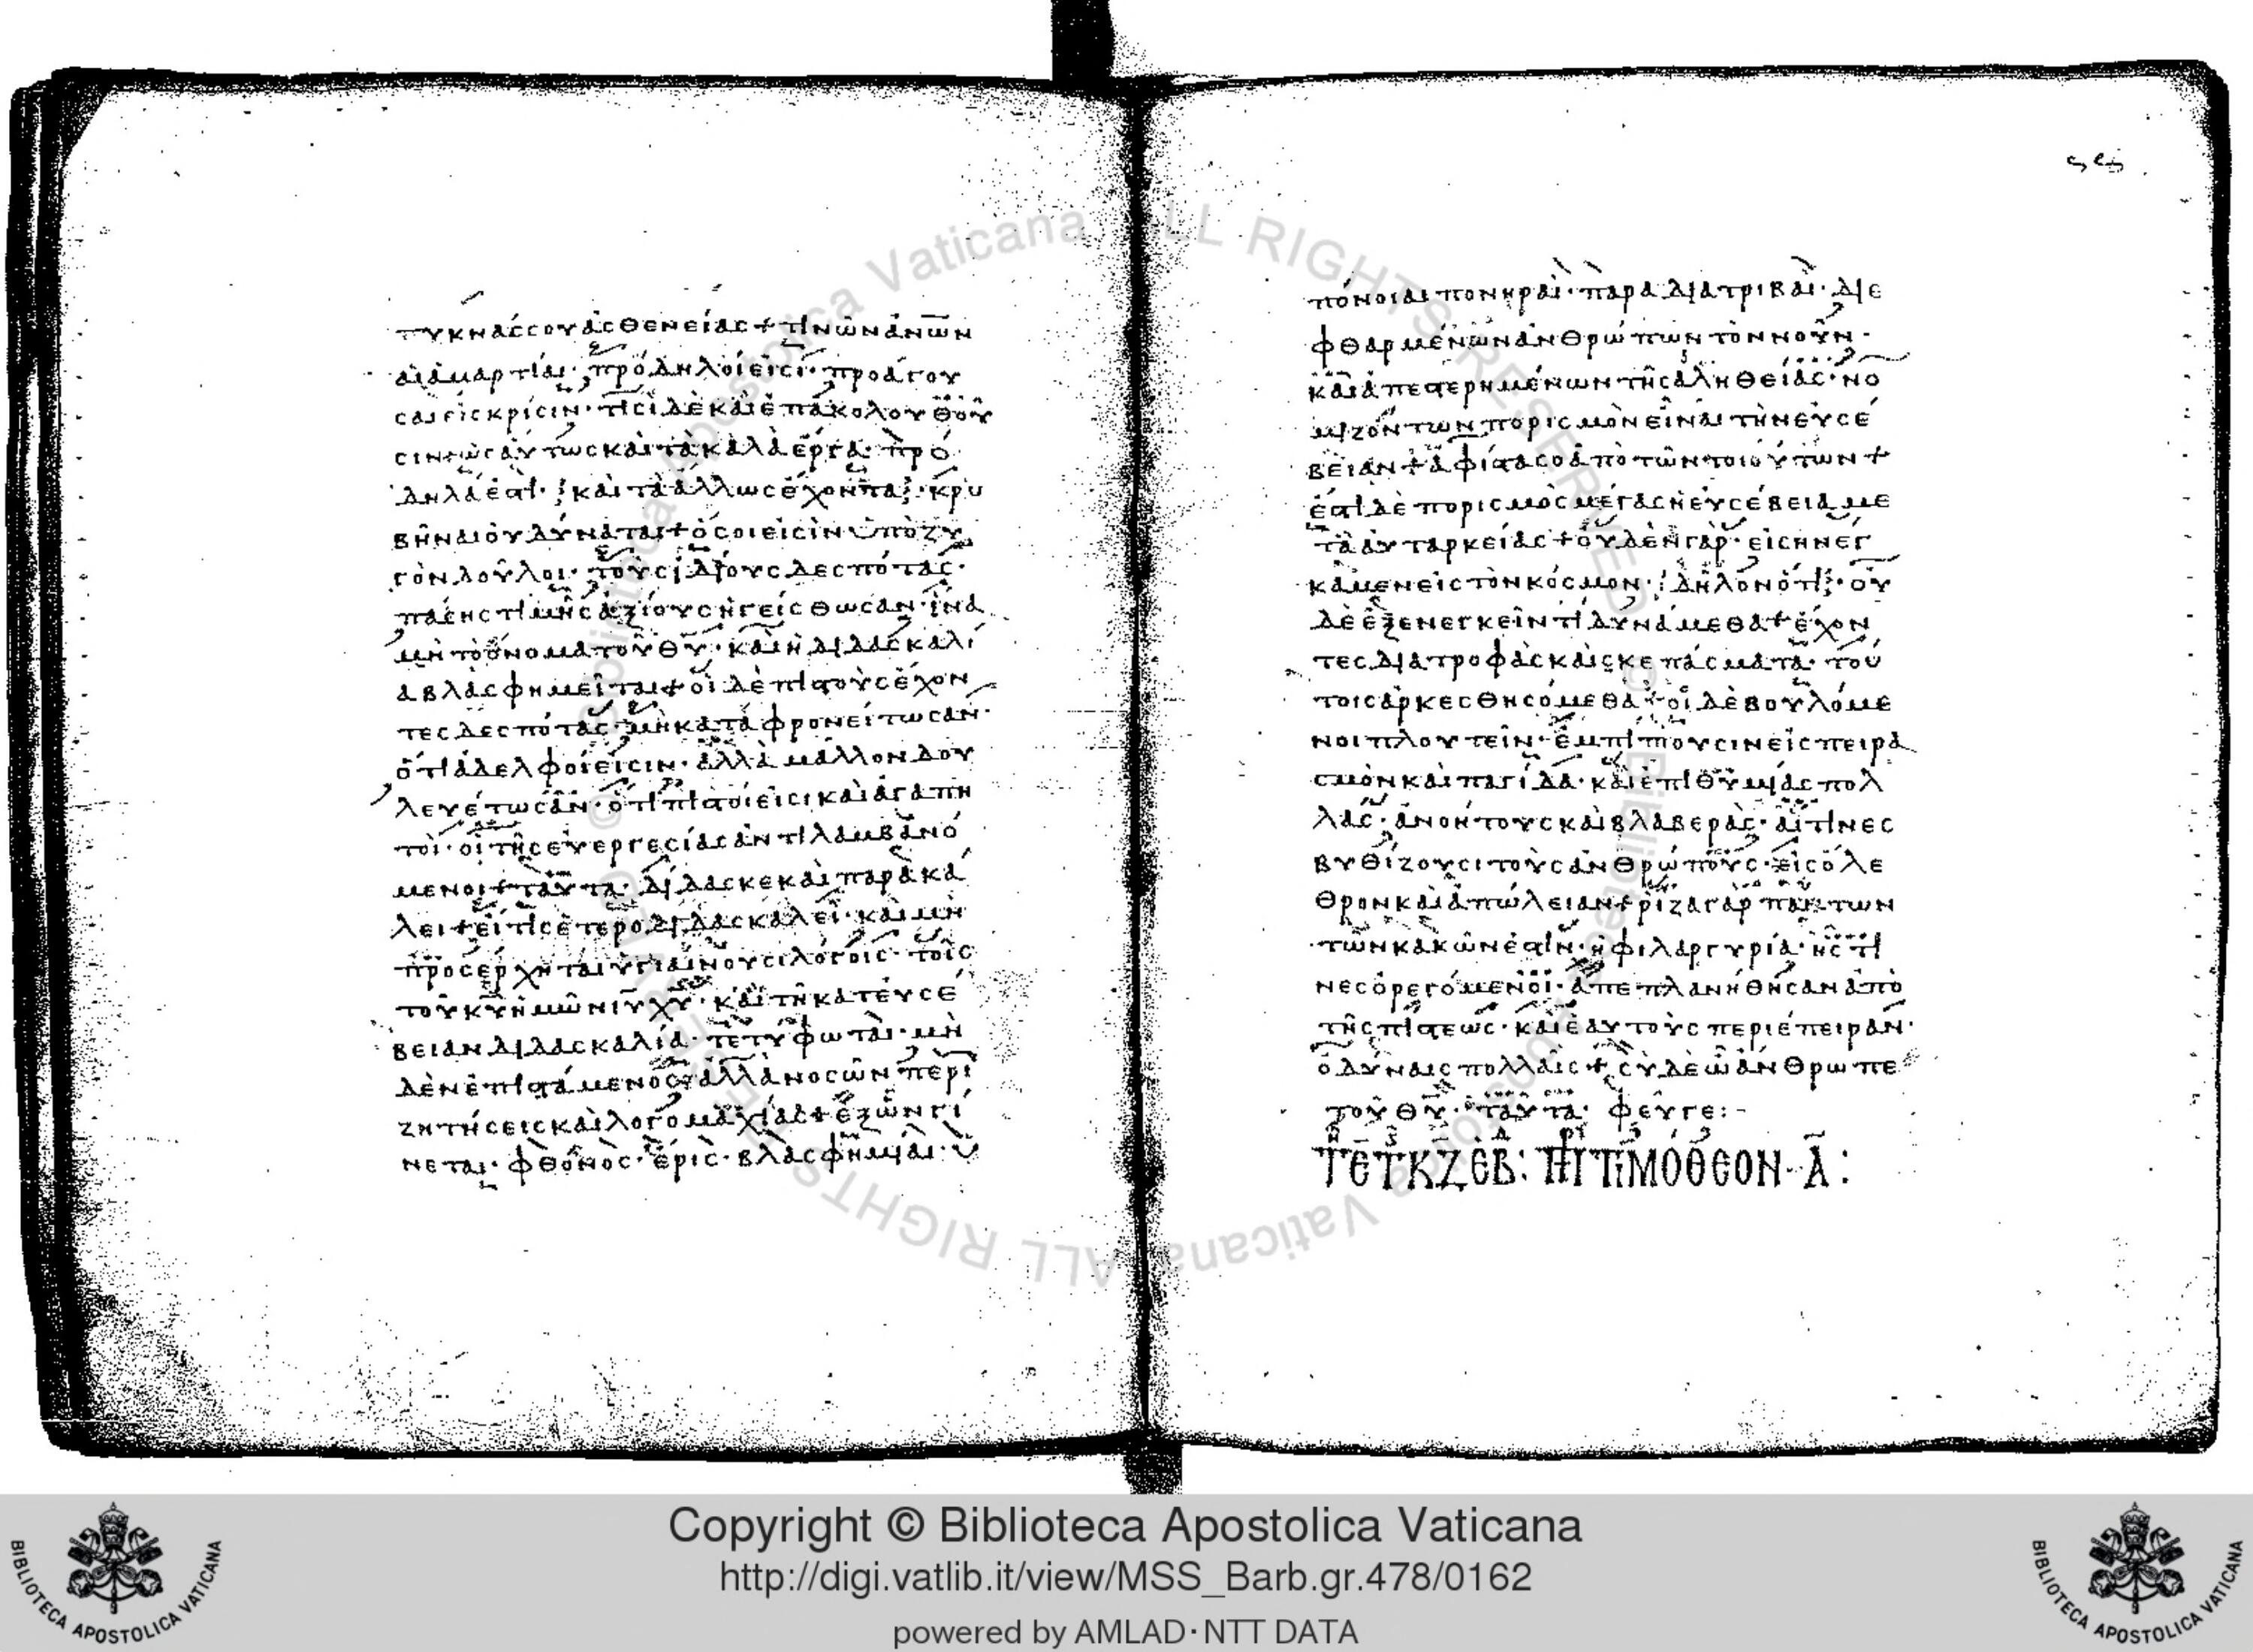 πυκνάς σου ἀσθενείας + τινῶν ἀνῶν
αἱ ἁμαρτίαι· πρόδηλοί εἰσι· προάγου
σαι εἰς κρίσιν· τισὶ δὲ καὶ ἐπακολουθοῦ
σιν + ὡσαύτως καὶ τὰ καλὰ ἔργα· πρό
δηλά ἐστι· καὶ τὰ ἄλλως ἔχοντα· κρυ
βῆναι οὐ δύναται + ὅσοι εἰσὶν ὑπὸ ζυ
γὸν δοῦλοι· τοὺς ἰδίους δεσπότας·
πάσης τιμῆς ἀξίους ἡγείσθωσαν· ἵνα
μὴ τὸ ὄνομα τοῦ θυ· καὶ ἡ διδασκαλί
α βλασφημεῖται + οἱ δὲ πιστοὺς ἔχον
τες δεσπότας· μὴ καταφρονείτωσαν·
ὅτι ἀδελφοί εἰσιν· ἀλλὰ μᾶλλον δου
λευέτωσαν· ὅτι πιστοί εἰσι καὶ ἀγαπη
τοὶ· οἱ τῆς εὐεργεσίας ἀντιλαμβανό
μενοι + ταῦτα· δίδασκε καὶ παρακά
λει + εἴ τις ἑτεροδιδασκαλεῖ· καὶ μὴ
προσέρχηται ὑγιαίνουσι λόγοις· τοῖς
τοῦ κυ ἡμῶν ιυ χυ· καὶ τῆ κατ εὐσέ
βειαν διδασκαλία· τετύφωται· μη
δὲν ἐπιστάμενος· ἀλλὰ νοσῶν περὶ
ζητήσεις καὶ λογομαχίας + ἐξ ὧν γί
νεται· φθόνος· ἔρις· βλασφημίαι· ὑ
πόνοιαι πονηραὶ· παραδιατριβαὶ· διε
φθαρμένων ἀνθρώπων τὸν νοῦν·
καὶ ἀπεστερημένων τῆς ἀληθείας· νο
μιζόντων πορισμὸν εἶναι τὴν εὐσέ
βειαν + ἀφίστασο ἀπὸ τῶν τοιούτων +
ἔστι δὲ πορισμὸς μέγας ἡ εὐσέβεια με
τὰ αὐταρκείας + οὐδὲν γὰρ· εἰσηνέγ
καμεν εἰς τὸν κόσμον· δῆλον ὅτι· οὐ
δὲ ἐξενεγκεῖν τι δυνάμεθα + ἔχον
τες διατροφὰς καὶ σκεπάσματα· τού
τοις ἀρκεσθησόμεθα + οἱ δὲ βουλόμε
νοι πλουτεῖν· ἐμπίπτουσιν εἰς πειρα
σμὸν καὶ παγίδα· καὶ ἐπιθυμίας πολ
λάς· ἀνοήτους καὶ βλαβεράς· αἵτινες
βυθίζουσι τοὺς ἀνθρώπους· εἰς ὄλε
θρον καὶ ἀπώλειαν + ῥίζα γὰρ πάντων
τῶν κακῶν ἐστὶν· ἡ φιλαργυρία· ἧς τι
νες ὀρεγόμενοι· ἀπεπλανήθησαν ἀπὸ
τῆς πίστεως· καὶ ἑαυτοὺς περιέπειραν·
ὀδύναις πολλαῖς + σὺ δὲ ὦ ἄνθρωπε
τοῦ θυ· ταῦτα· φεῦγε:-
ΤΙΜΟΘΕΟΝ Α:
Copyright © Biblioteca Apostolica Vaticana
http://digi.vatlib.it/view/MSS_Barb.gr.478/0162
powered by AMLAD·NTT DATA
BIBLIOTECA APOSTOLICA VATICANA
BIBLIOTECA APOSTOLICA VATICANA